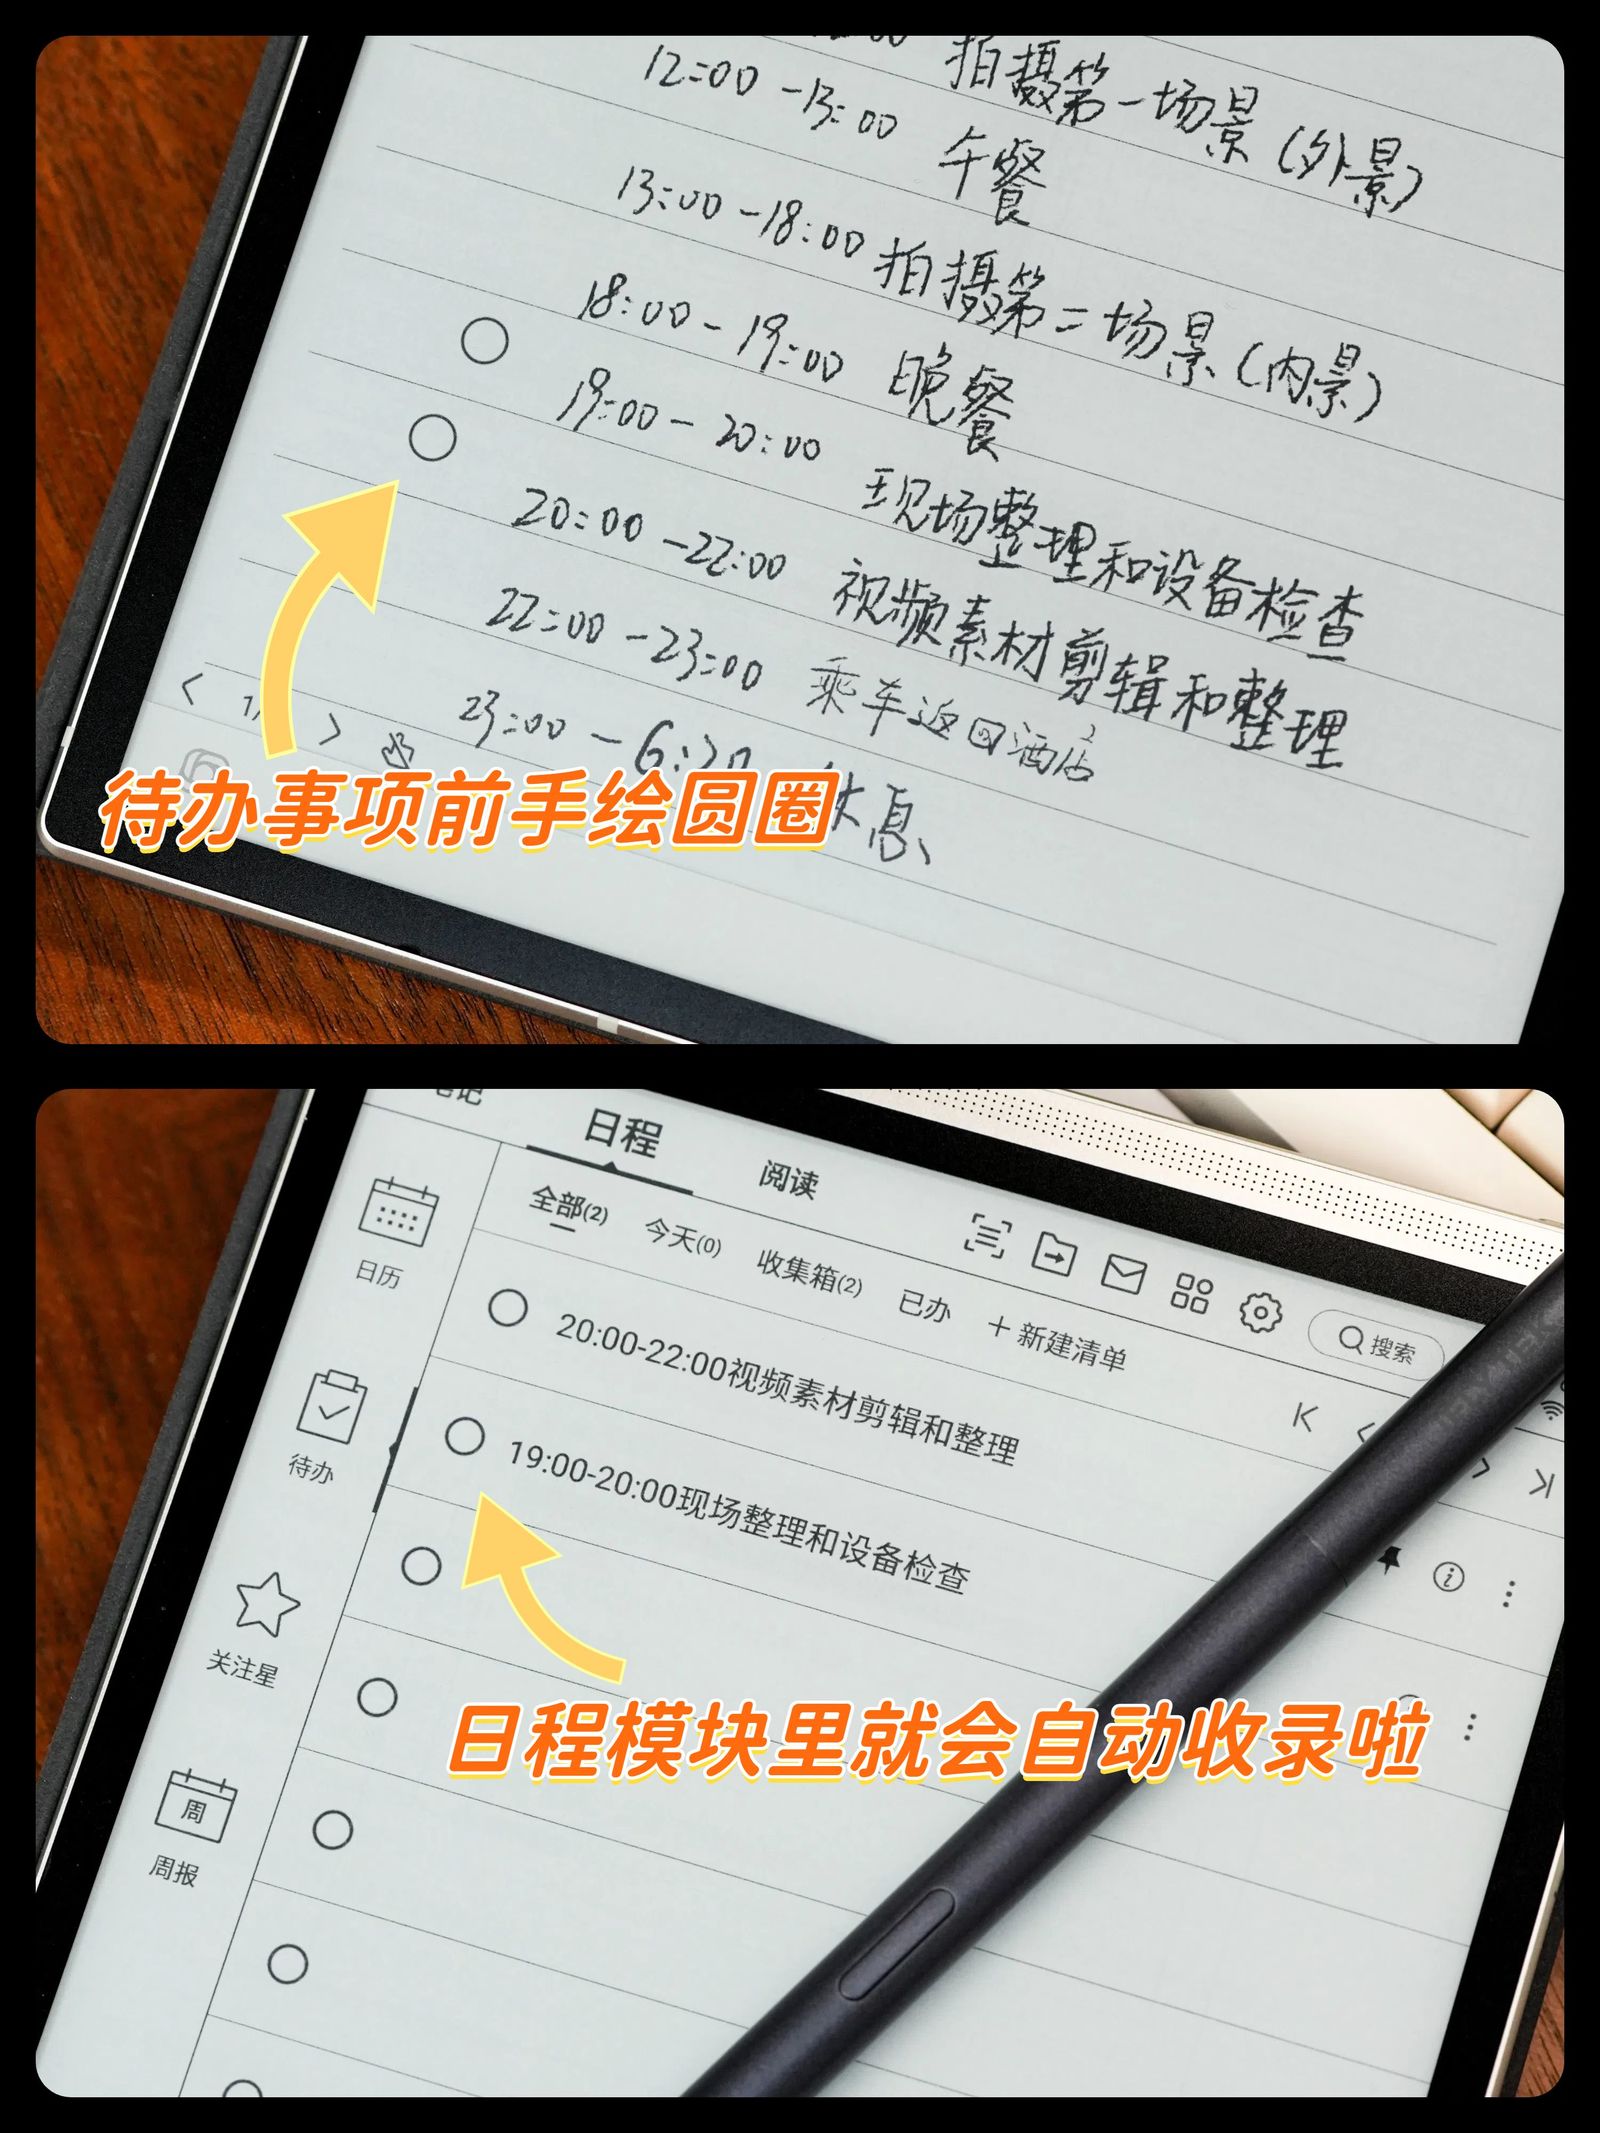 拍摄第一场景(外景)
12:00-13:00 午餐
13:00-18:00 拍摄第二场景(内景)
18:00-19:00 晚餐
19:00-20:00 现场整理和设备检查
20:00-22:00 视频素材剪辑和整理
22:00-23:00 乘车返回酒店
23:00-6:20 休息
待办事项前手绘圆圈
笔记
日程
阅读
全部(2) 今天(0) 收集箱(2) 已办 +新建清单
搜索
日历
待办
关注星
周
周报
20:00-22:00视频素材剪辑和整理
19:00-20:00现场整理和设备检查
日程模块里就会自动收录啦